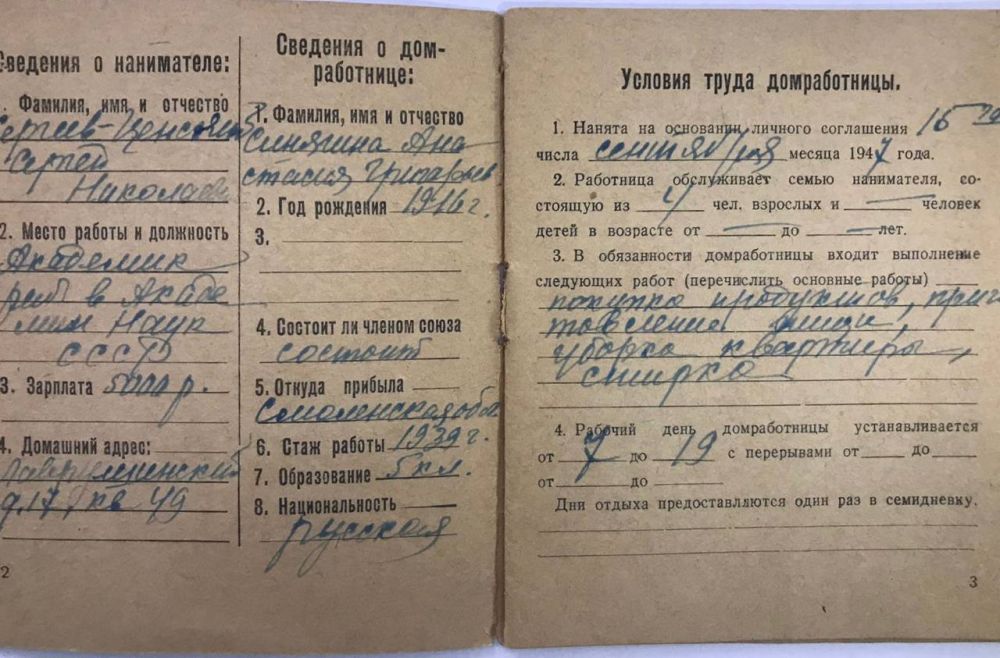 Сведения о нанимателе:
Фамилия, имя и отчество
Сергеев-Ценский
Сергей
Николаев
2. Место работы и должность
Академик
раб в Акаде
мии Наук
СССР
3. Зарплата 5000 р.
4. Домашний адрес:
Лаврушинский
д. 17 кв 49
2
Сведения о дом-
работнице:
1. Фамилия, имя и отчество
Синягина Ана
стасия Григорьев
2. Год рождения 1916 г.
3.
4. Состоит ли членом союза
состоит
5. Откуда прибыла
Смоленская обл.
6. Стаж работы 1939 г.
7. Образование 5 кл.
8. Национальность
русская
Условия труда домработницы.
1. Нанята на основании личного соглашения 15 го
числа сентября месяца 1947 года.
2. Работница обслуживает семью нанимателя, со-
стоящую из 4 чел. взрослых и — человек
детей в возрасте от — до — лет.
3. В обязанности домработницы входит выполнение
следующих работ (перечислить основные работы)
покупка продуктов, приго
товление пищи,
уборка квартиры,
стирка
4. Рабочий день домработницы устанавливается
от 7 до 19 с перерывами от до
от до
Дни отдыха предоставляются один раз в семидневку.
3